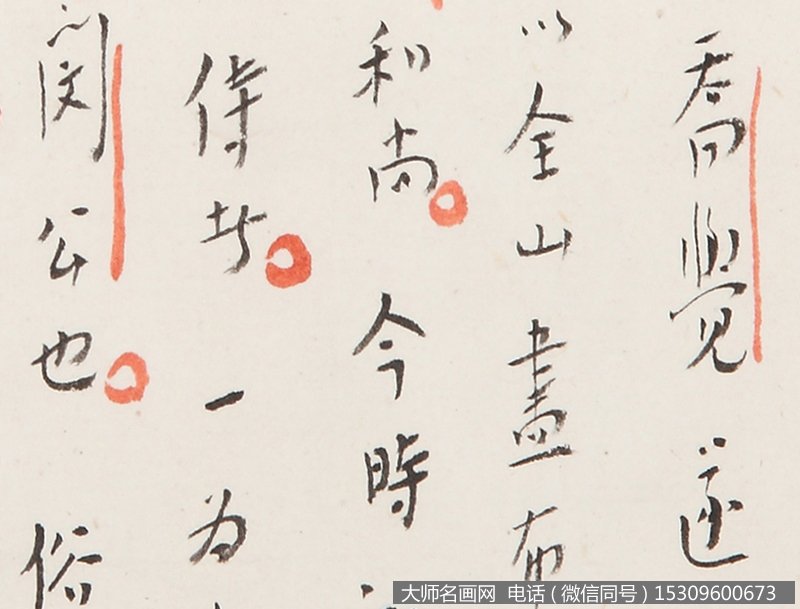 喬覺遂
以全山盡布
和尚今時
侍者一為
閔公也俗
大师名画网 电话(微信同号)15309600673